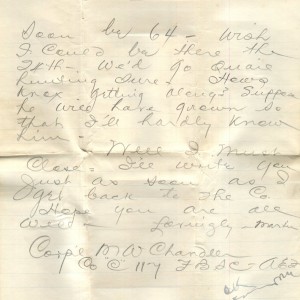 Soon be 64 - Wish
I could be there the
We'd go Quail
hunting sure - Hows
Knox getting along? Suppose
he will have grown so
that I'll hardly know
him -
Well I must
Close - I'll write you
Just as soon as I
get back to the Co.
Hope you are all
Well - Lovingly - Mark
Corp'l M W Chandler
Co C 117 F B S C - A E F